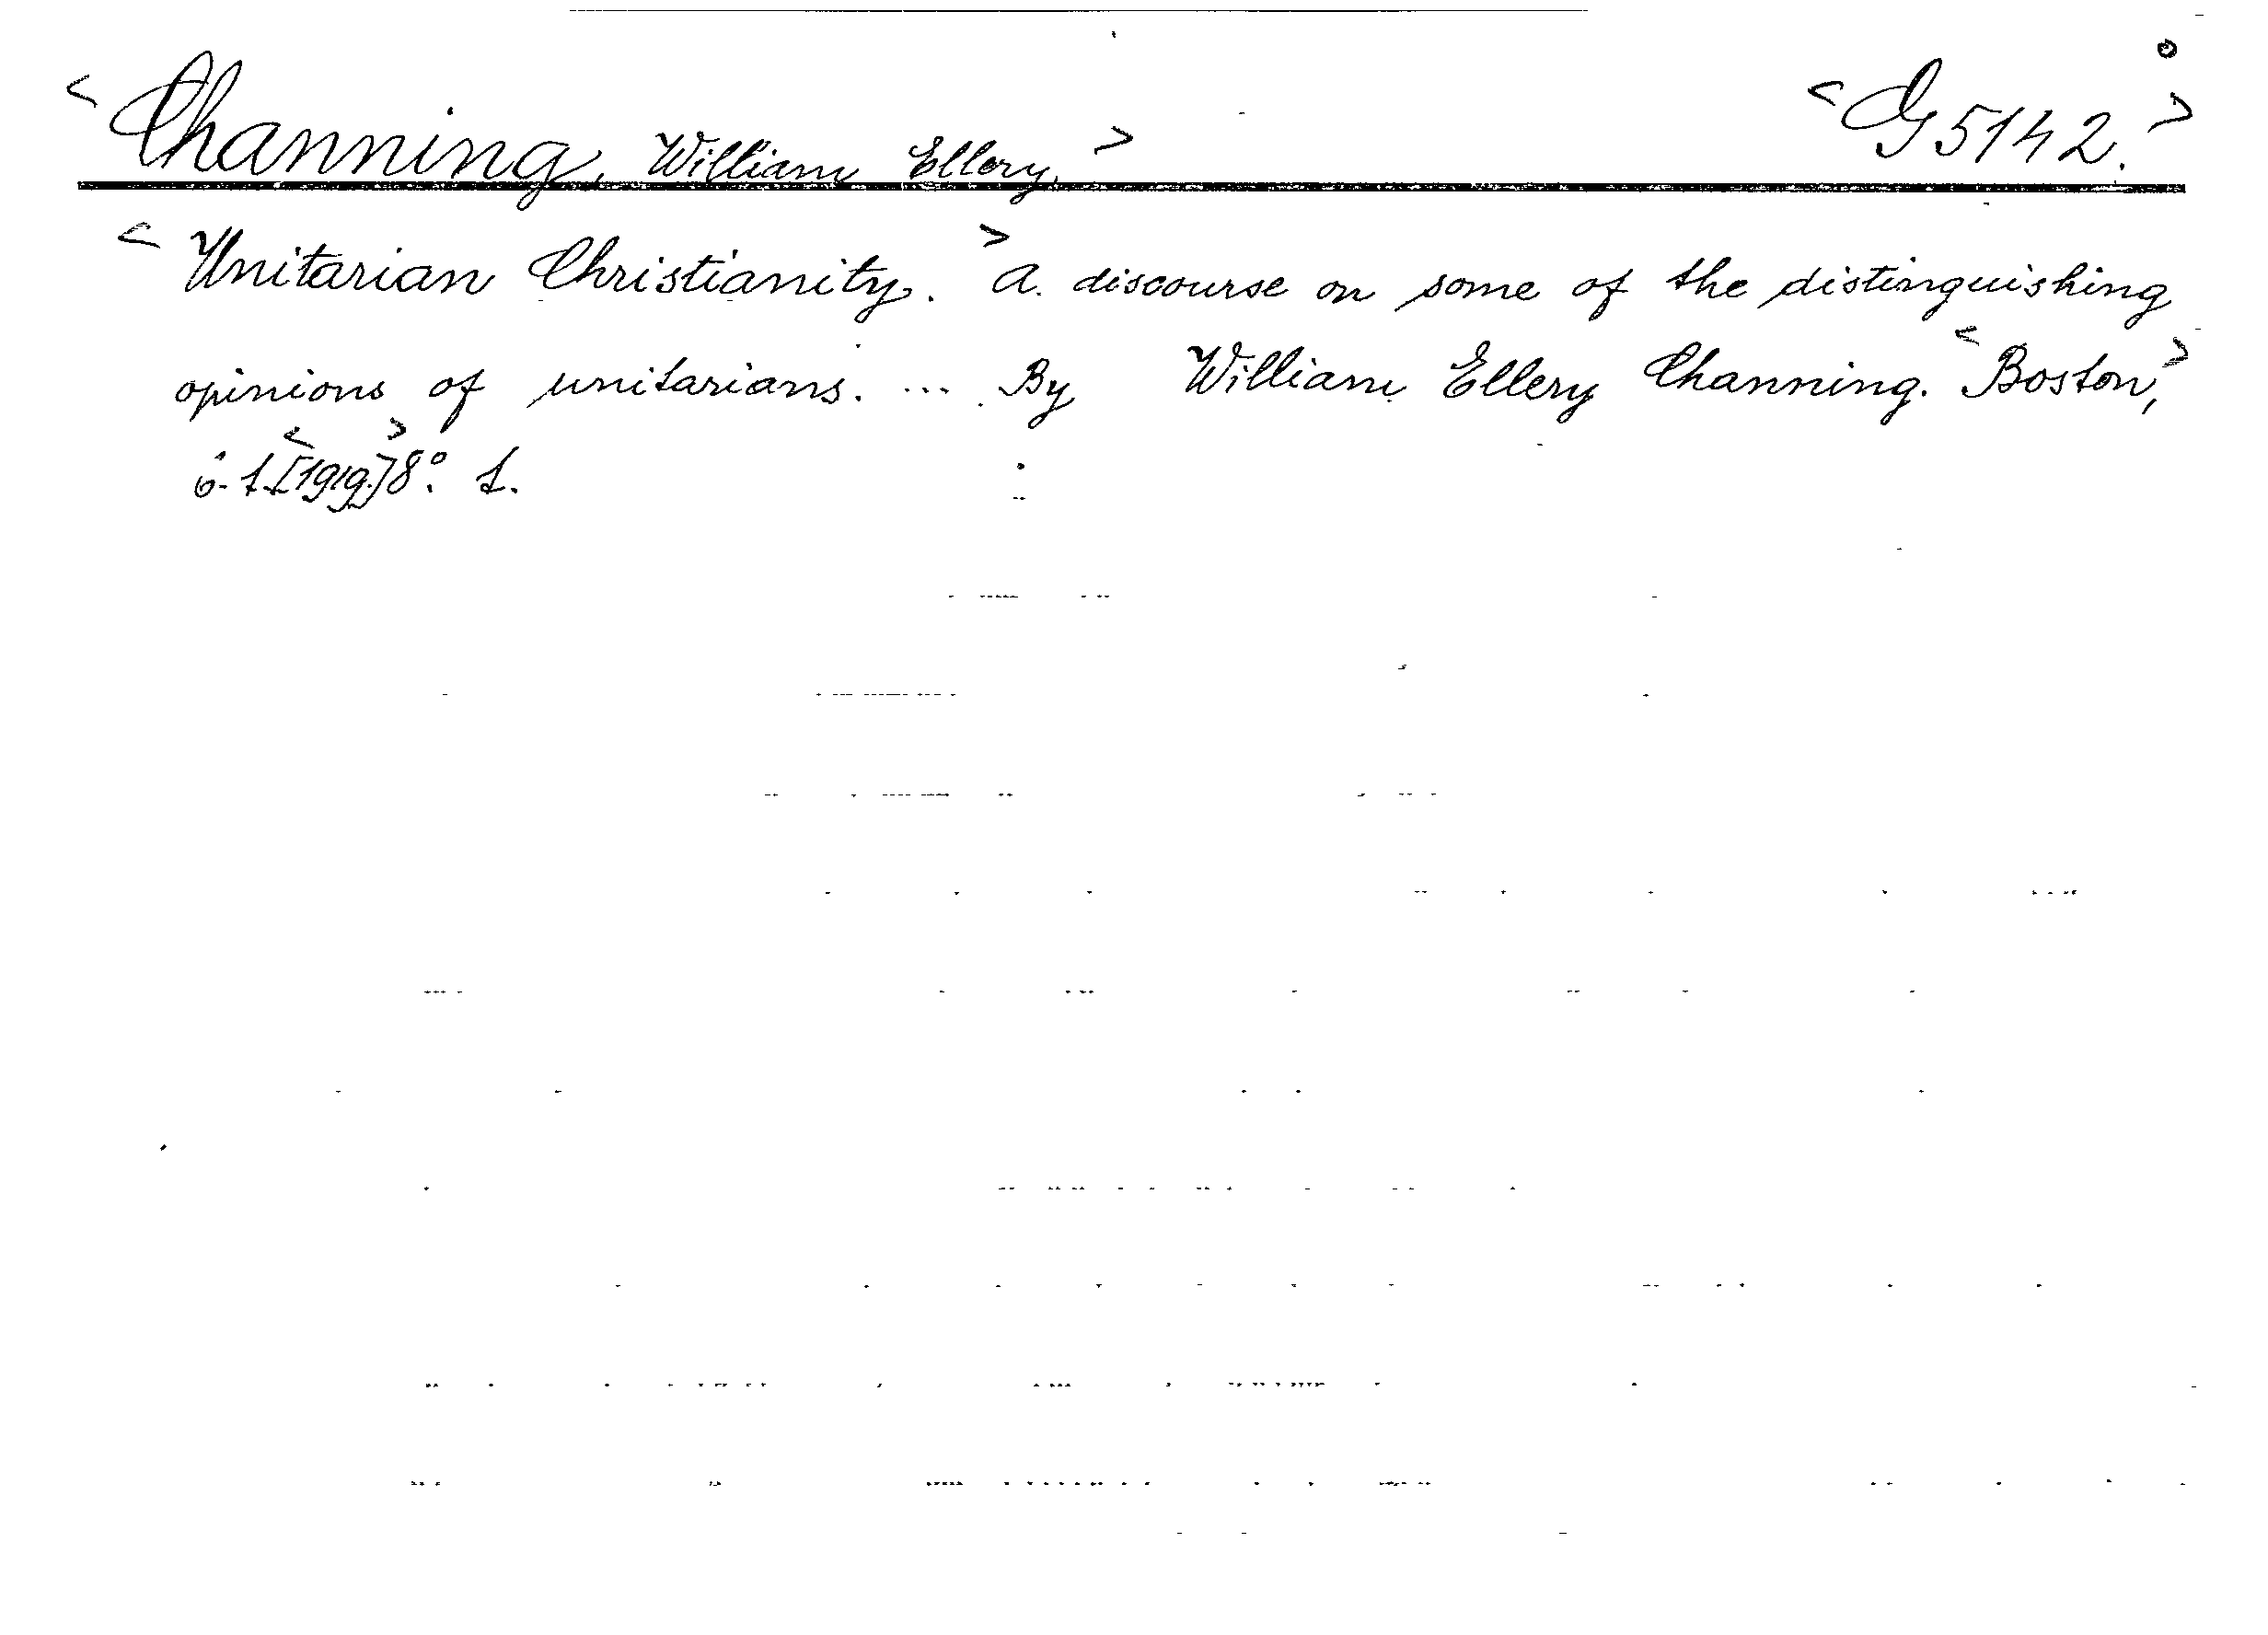 <Channing, William Ellery.> <G 5142.>
<Unitarian Christianity.> A. discourse on some of the distinguishing
opinions of unitarians. ... By William Ellery Channing. <Boston,>
é. f. <[1919.]> 8°. 1.